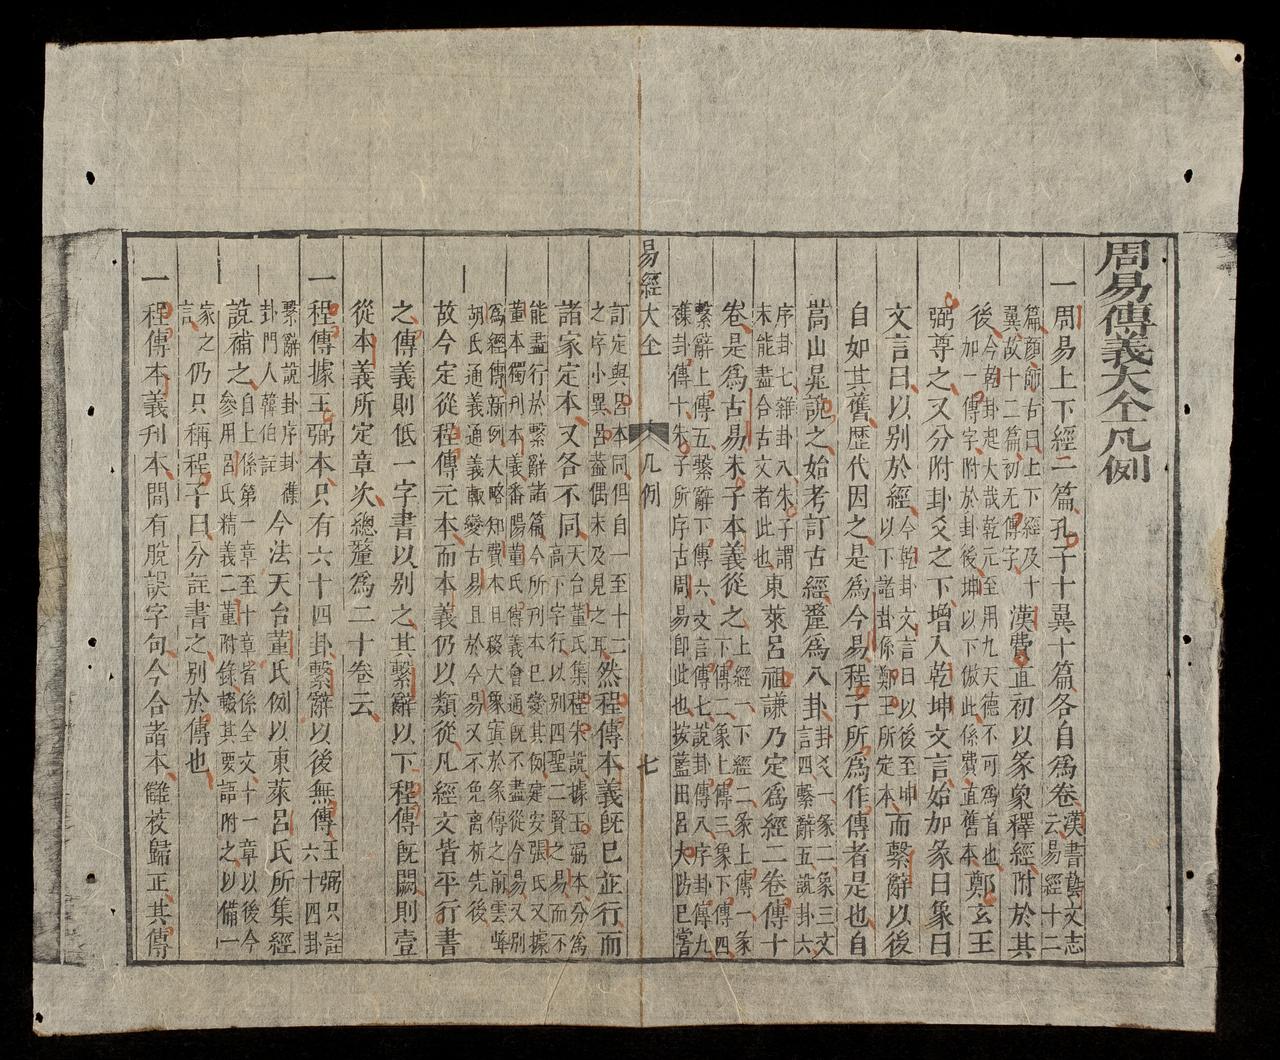 周易傳義大全凡例
一周易上下經二篇孔子十翼十篇各自爲卷漢書藝文志
云易經十二
篇顔師古曰上下經及十
翼故十二篇初无傳字
漢費直初以彖象釋經附於其
後今乾卦起大哉乾元至用九天德不可爲首也
加一傳字附於卦後坤以下倣此係費直舊本
鄭玄王
弼尊之又分附卦爻之下增入乾坤文言始加彖曰象曰
文言曰以別於經今乾卦文言曰以後至坤
以下諸卦係鄭王所定本
而繫辭以後
自如其舊歷代因之是爲今易程子所爲作傳者是也自
嵩山晁說之始考訂古經釐爲八卦爻一彖二象三文
言四繫辭五說卦六
序卦七雜卦八朱子謂
未能盡合古文者此也
東萊呂祖謙乃定爲經二卷傳十
卷是爲古易朱子本義從之上經一下經二彖上傳一彖
下傳二象上傳三象下傳四
繫辭上傳五繫辭下傳六文言傳七說卦傳八序卦傳九
雜卦傳十朱子所序古周易卽此也按藍田呂大防已嘗
易經大全 凡例 七
訂定與呂本同但自一至十二
之序小異呂蓋偶未及見之耳
然程傳本義既已並行而
諸家定本又各不同天台董氏集程朱說據王弼本分爲
高下字行以別四聖二賢之易而不
能盡行於繫辭諸篇今所刊本已變其例建安張氏又據
董本獨刊本義番陽董氏傳義會通既不盡從今易又別
爲經傳新例大略知費本且移大象寘於彖傳之前雲峰
胡氏通義通義輒變古易且於今易又不免离析先後
故今定從程傳元本而本義仍以類從凡經文皆平行書
之傳義則低一字書以別之其繫辭以下程傳旣闕則壹
從本義所定章次總釐爲二十卷云
一程傳據王弼本只有六十四卦繫辭以後無傳王弼只註
六十四卦
繫辭說卦序卦雜
卦門人韓伯註
今法天台董氏例以東萊呂氏所集經
說補之自上係第一章至十章皆係全文十一章以後今
參用呂氏精義二董附錄輟其要語附之以備一
家之
言
仍只稱程子曰分註書之別於傳也
一程傳本義刊本間有脫誤字句今合諸本讎校歸正其傳